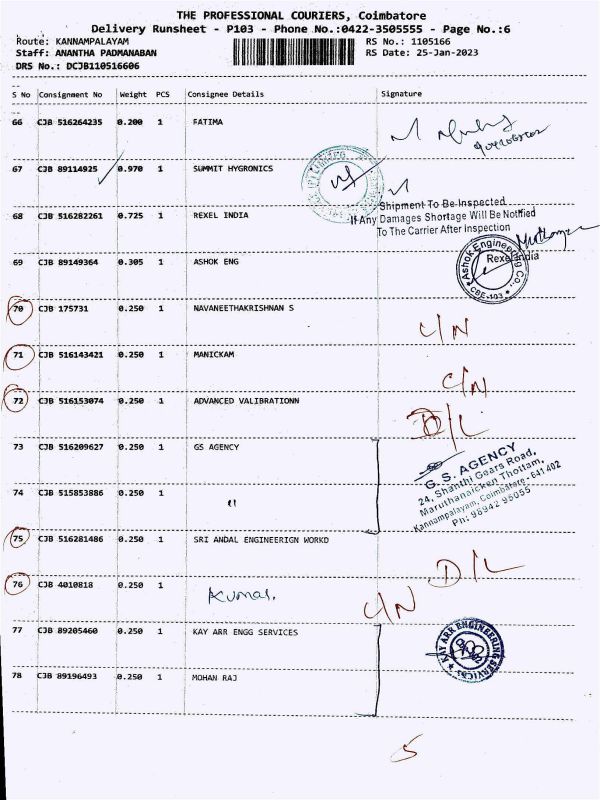 THE PROFESSIONAL COURIERS, Coimbatore
Delivery Runsheet - P103 - Phone No.:0422-3505555 - Page No.:6
Route: KANNAMPALAYAM
RS No.: 1105166
Staff: ANANTHA PADMANABAN
RS Date: 25-Jan-2023
DRS No.: DCJB110516606
S No Consignment No Weight PCS Consignee Details Signature
66 CJB 516264235 0.200 1 FATIMA
67 CJB 89114925 0.970 1 SUMMIT HYGRONICS
Shipment To Be Inspected
68 CJB 516282261 0.725 1 REXEL INDIA
If Any Damages Shortage Will Be Notified
To The Carrier After Inspection
Rexel India
69 CJB 89149364 0.305 1 ASHOK ENG
Ashok Engineering Co.,
CBE-103
70 CJB 175731 0.250 1 NAVANEETHAKRISHNAN S
C/N
71 CJB 516143421 0.250 1 MANICKAM
C/N
72 CJB 516153074 0.250 1 ADVANCED VALIBRATIONN
D/L
73 CJB 516209627 0.250 1 GS AGENCY
G. S. AGENCY
24, Shanthi Gears Road,
Maruthanaicken Thottam,
Kannampalayam, Coimbatore - 641 402
Ph: 98942 95055
74 CJB 515853886 0.250 1 "
75 CJB 516281486 0.250 1 SRI ANDAL ENGINEERIGN WORKD
D/L
76 CJB 4010818 0.250 1 Kumar.
C/N
77 CJB 89205460 0.250 1 KAY ARR ENGG SERVICES
KAY ARR ENGINEERING SERVICES
78 CJB 89196493 0.250 1 MOHAN RAJ
5